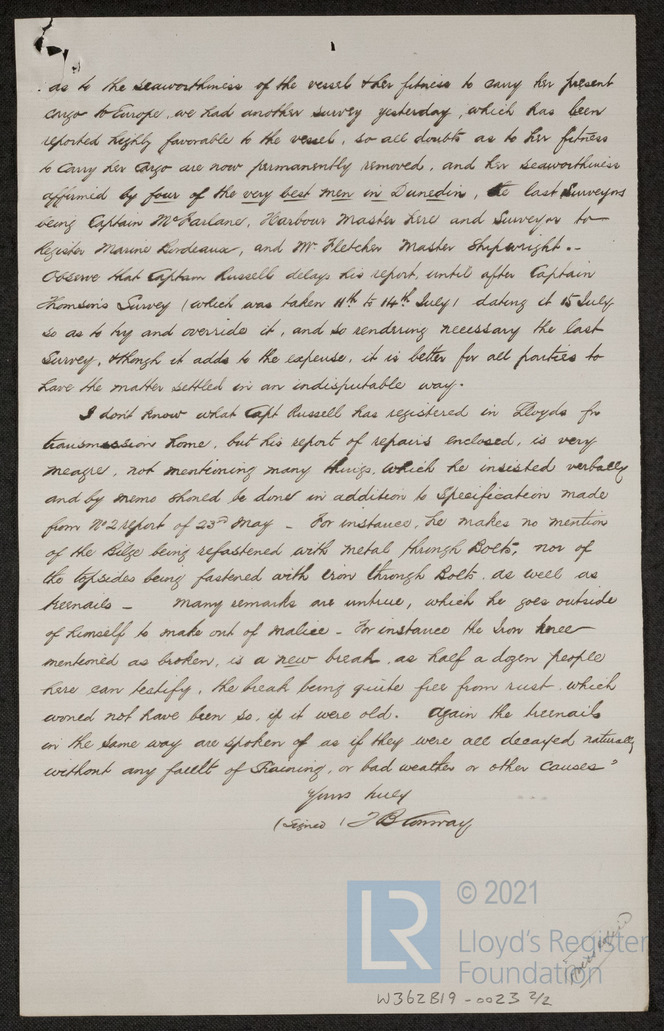 as to the seaworthiness of the vessel & her fitness to carry her present
cargo to Europe, we had another survey yesterday, which has been
reported highly favorable to the vessel, so all doubts as to her fitness
to carry her cargo are now permanently removed, and her seaworthiness
affirmed by four of the very best men in Dunedin, the last Surveyors
being Captain McFarlane, Harbour Master here and Surveyor to
Register Marine Bordeaux, and Mr Fletcher Master Shipwright.-
Observe that Captain Russell delays his report, until after Captain
Thomson's Survey (which was taken 11th to 14th July) dating it 15 July
so as to try and override it, and so rendering necessary the last
Survey, & though it adds to the expense, it is better for all parties to
have the matter settled in an indisputable way.
I don't know what Capt Russell has registered in Lloyds for
transmission home, but his report of repairs enclosed, is very
meagre, not mentioning many things, which he insisted verbally
and by memo should be done in addition to Specification made
from No 2 report of 23rd May - For instance, he makes no mention
of the Bilge being refastened with metal through Bolts, nor of
the topsides being fastened with iron through Bolts, as well as
treenails - Many remarks are untrue, which he goes outside
of himself to make out of malice - For instance the Iron knee
mentioned as broken, is a new break, as half a dozen people
here can testify, the break being quite free from rust, which
would not have been so, if it were old. Again the treenails
in the same way are spoken of as if they were all decayed naturally
without any fault of Straining, or bad weather or other causes"
Yours truly
(Signed) J B Conway
© 2021
LR
Lloyd's Register
Foundation
W362819-0023 2/2